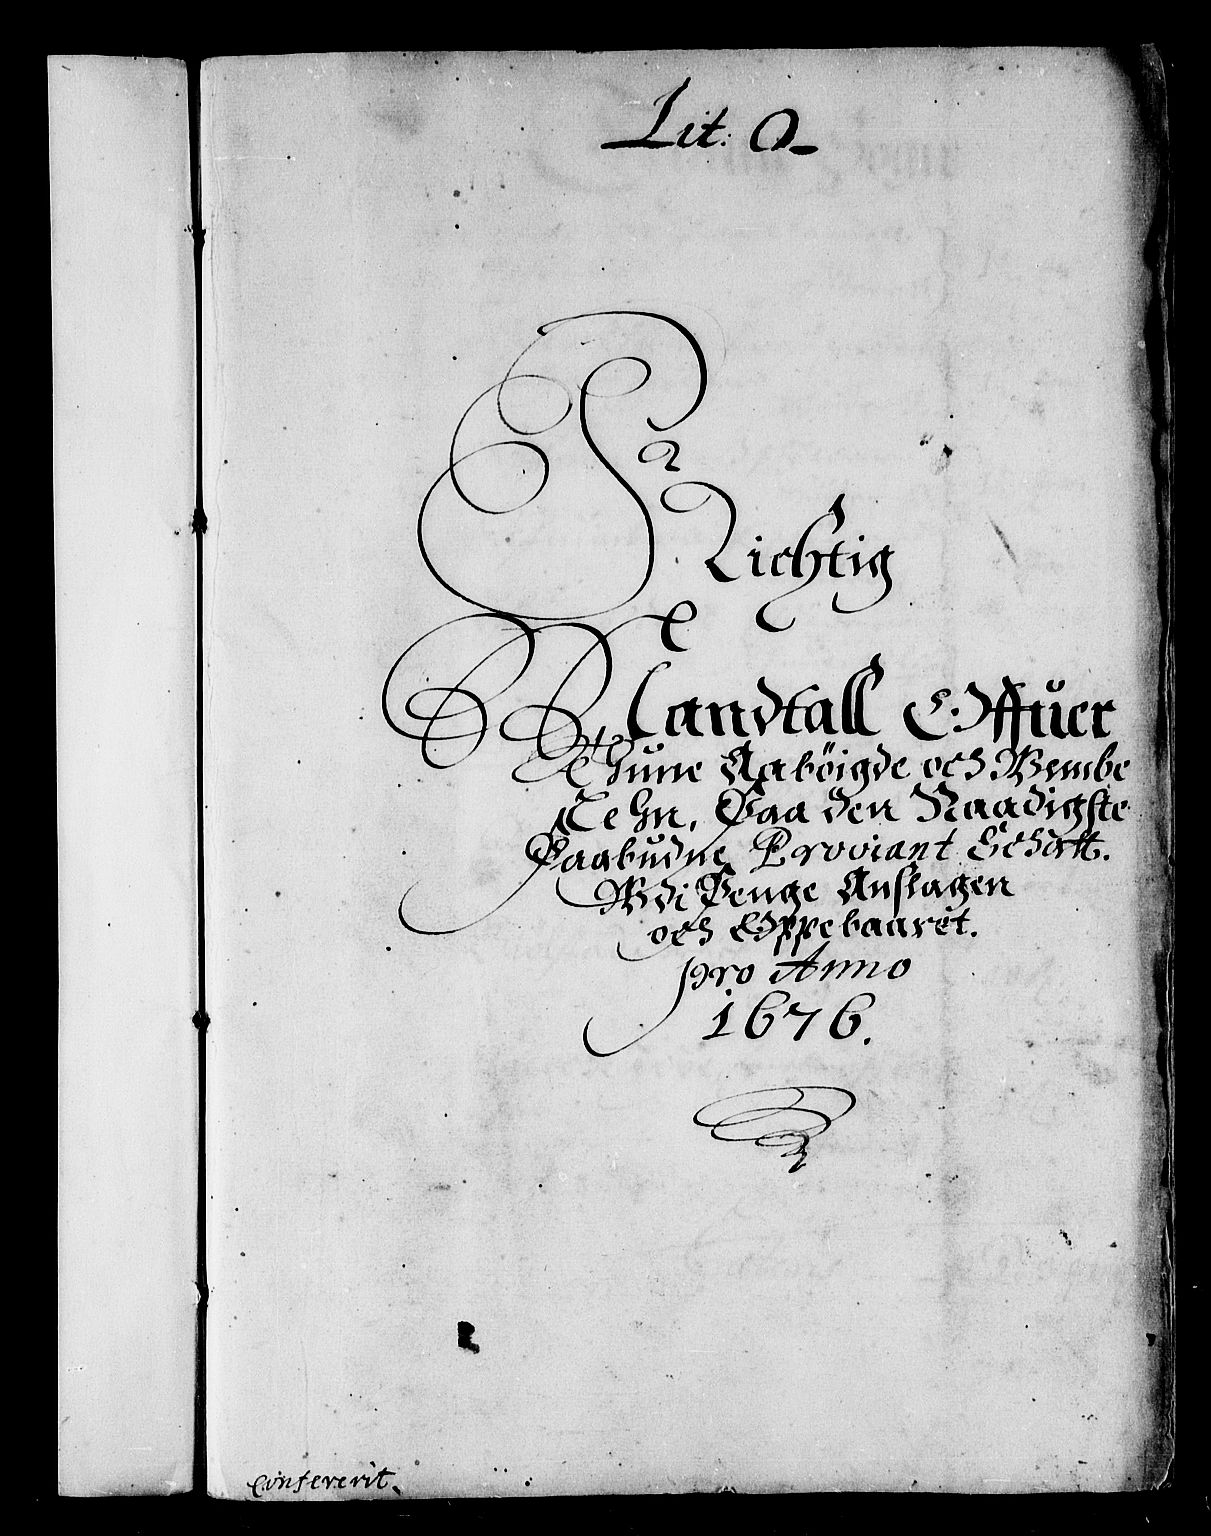 Lit: O
Richtig
Mandtall Offuer
Thune Aabøigde och Wembe
Lehn, Paa den Naadigste
Paabudne Proviant Schatt.
Udi Penge Anslagen
och Oppebaaret.
pro Anno
1676.
Confererit.